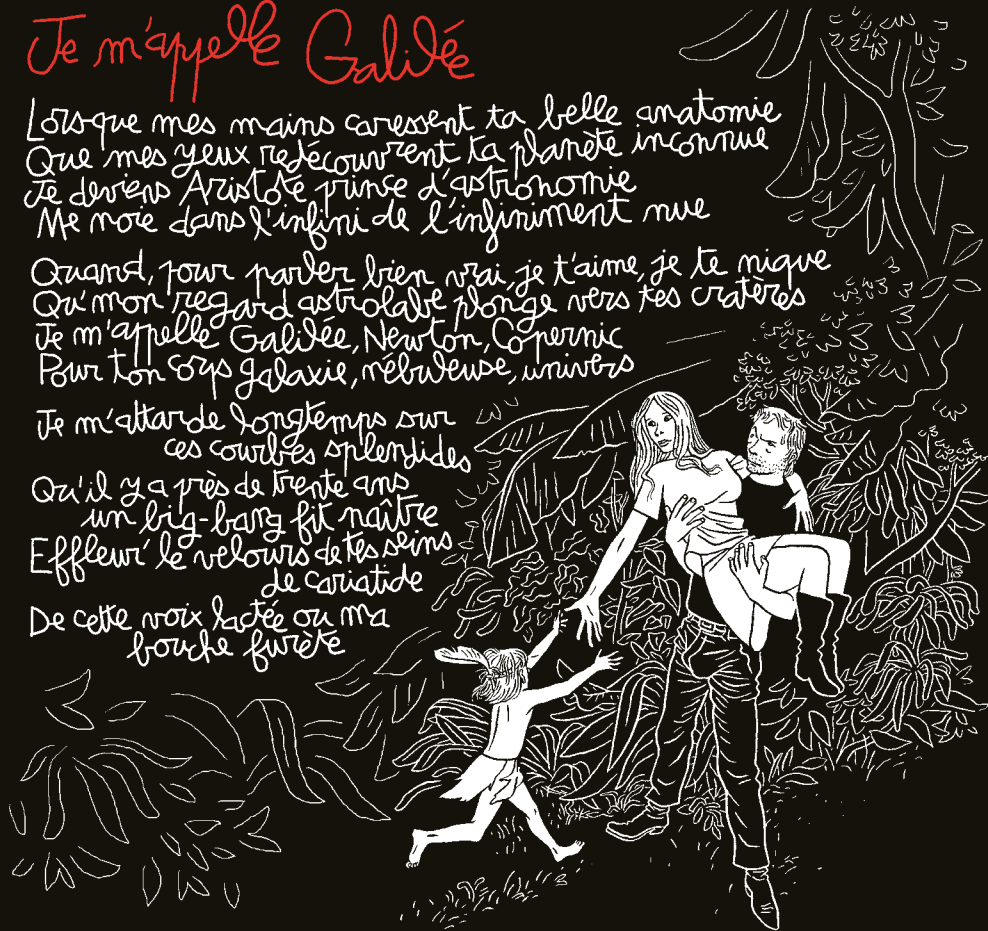 Je m'appelle Galilée
Lorsque mes mains caressent ta belle anatomie
Que mes yeux redécouvrent ta planète inconnue
Je deviens Aristote prince d'astronomie
Me noie dans l'infini de l'infiniment nue
Quand, pour parler bien vrai, je t'aime, je te nique
Qu'mon regard astrolabe plonge vers tes cratères
Je m'appelle Galilée, Newton, Copernic
Pour ton corps galaxie, nébuleuse, univers
Je m'attarde longtemps sur
ces courbes splendides
Qu'il y a près de trente ans
un big-bang fit naître
Effleur' le velours de tes seins
de cariatide
De cette voix lactée ou ma
bouche furète